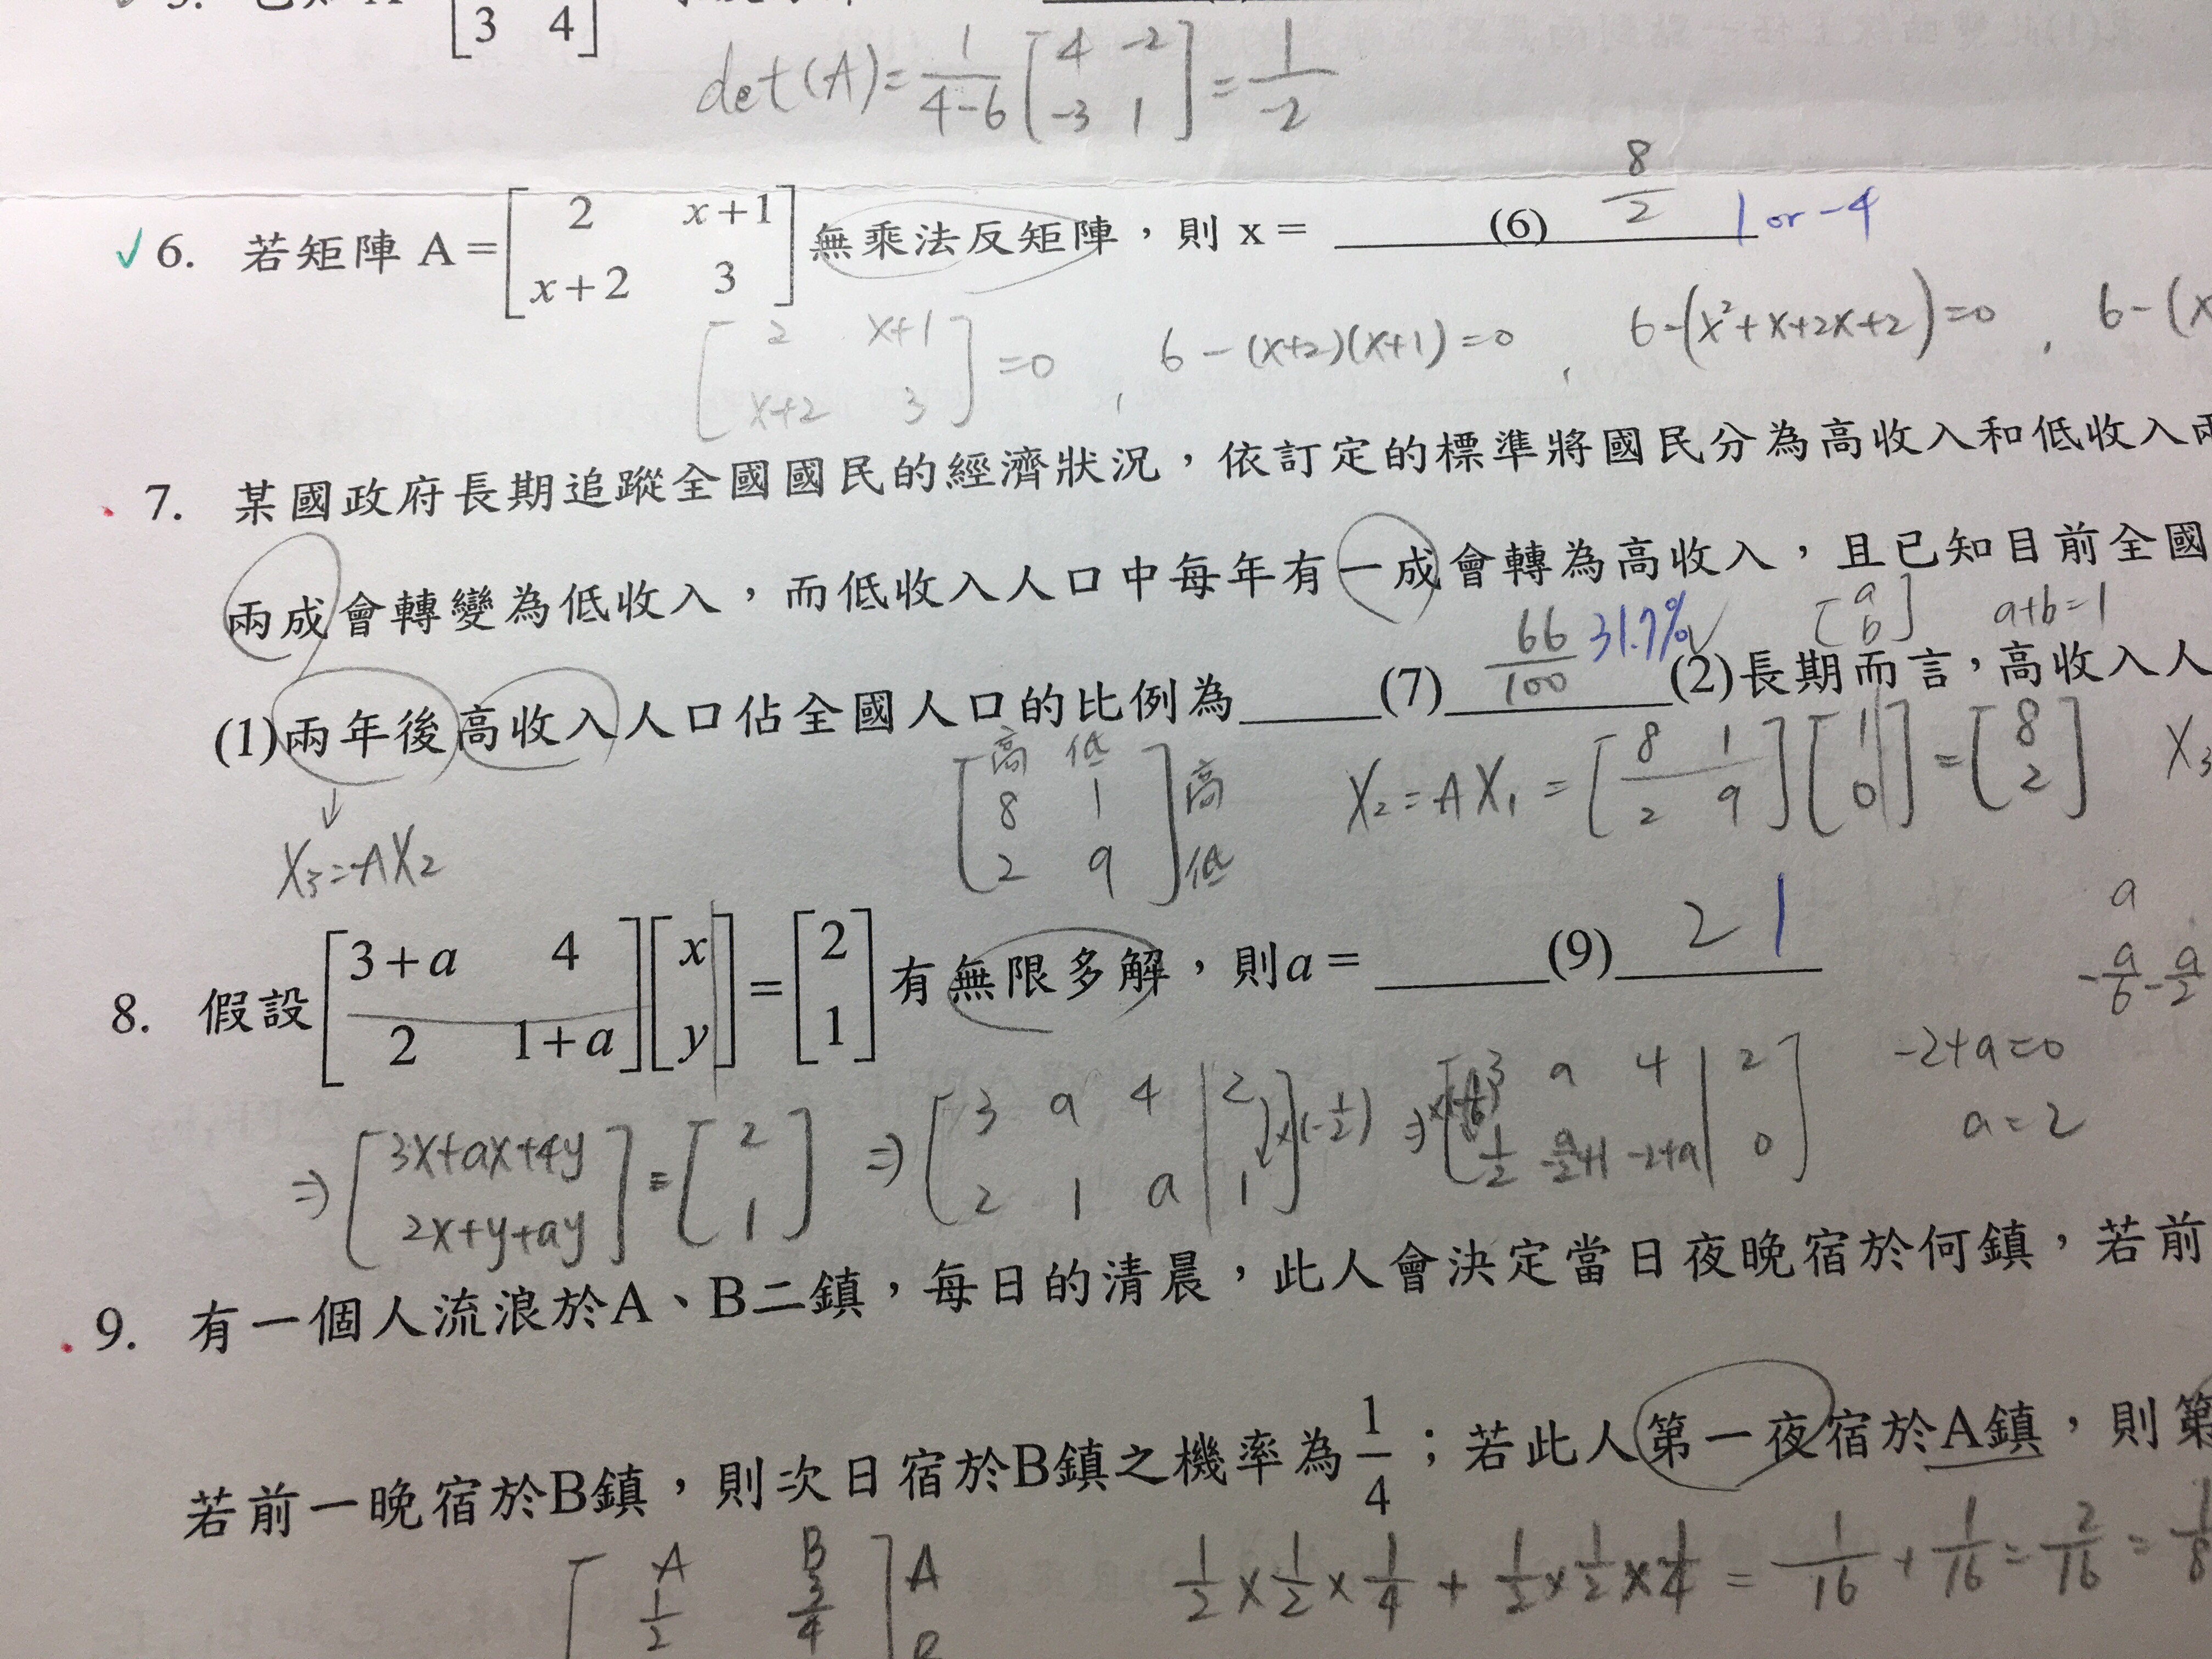 [3 4]
det(A)= 1/4-6 [4 -2 -3 1] = 1/-2
6. 若矩陣 A=[2 x+1 x+2 3]無乘法反矩陣，則 x= ____(6) 8/2 1 or -4
[2 x+1 x+2 3]=0 , 6-(x+2)(x+1)=0 , 6-(x²+x+2x+2)=0 , 6-(x
7. 某國政府長期追蹤全國國民的經濟狀況，依訂定的標準將國民分為高收入和低收入
兩成會轉變為低收入，而低收入人口中每年有一成會轉為高收入，且已知目前全國
[a b] a+b=1
(1)兩年後高收入人口佔全國人口的比例為____(7) 66/100 31.7% (2)長期而言，高收入人
高 低
[8 1 2 9] 高 低
X₂=AX₁=[8 1 2 9][1 0]=[8 2] X₃
X₃=AX₂
8. 假設[3+a 4 2 1+a][x y]=[2 1]有無限多解，則a= ____(9) 2 1
a
-a/6-a/2
-2+a=0
a=2
⇒[3x+ax+4y 2x+y+ay]=[2 1] ⇒[3 a 4|2 2 1 a|1]x(-1/2) ⇒[3 a 4|2 1/2 -a/2+1 -2+a|0]
9. 有一個人流浪於A、B二鎮，每日的清晨，此人會決定當日夜晚宿於何鎮，若前
若前一晚宿於B鎮，則次日宿於B鎮之機率為1/4；若此人第一夜宿於A鎮，則第
A B
[1/2 3/4] A
1/2×1/2×1/4+1/2×1/2×1/4=1/16+1/16=2/16=1/8